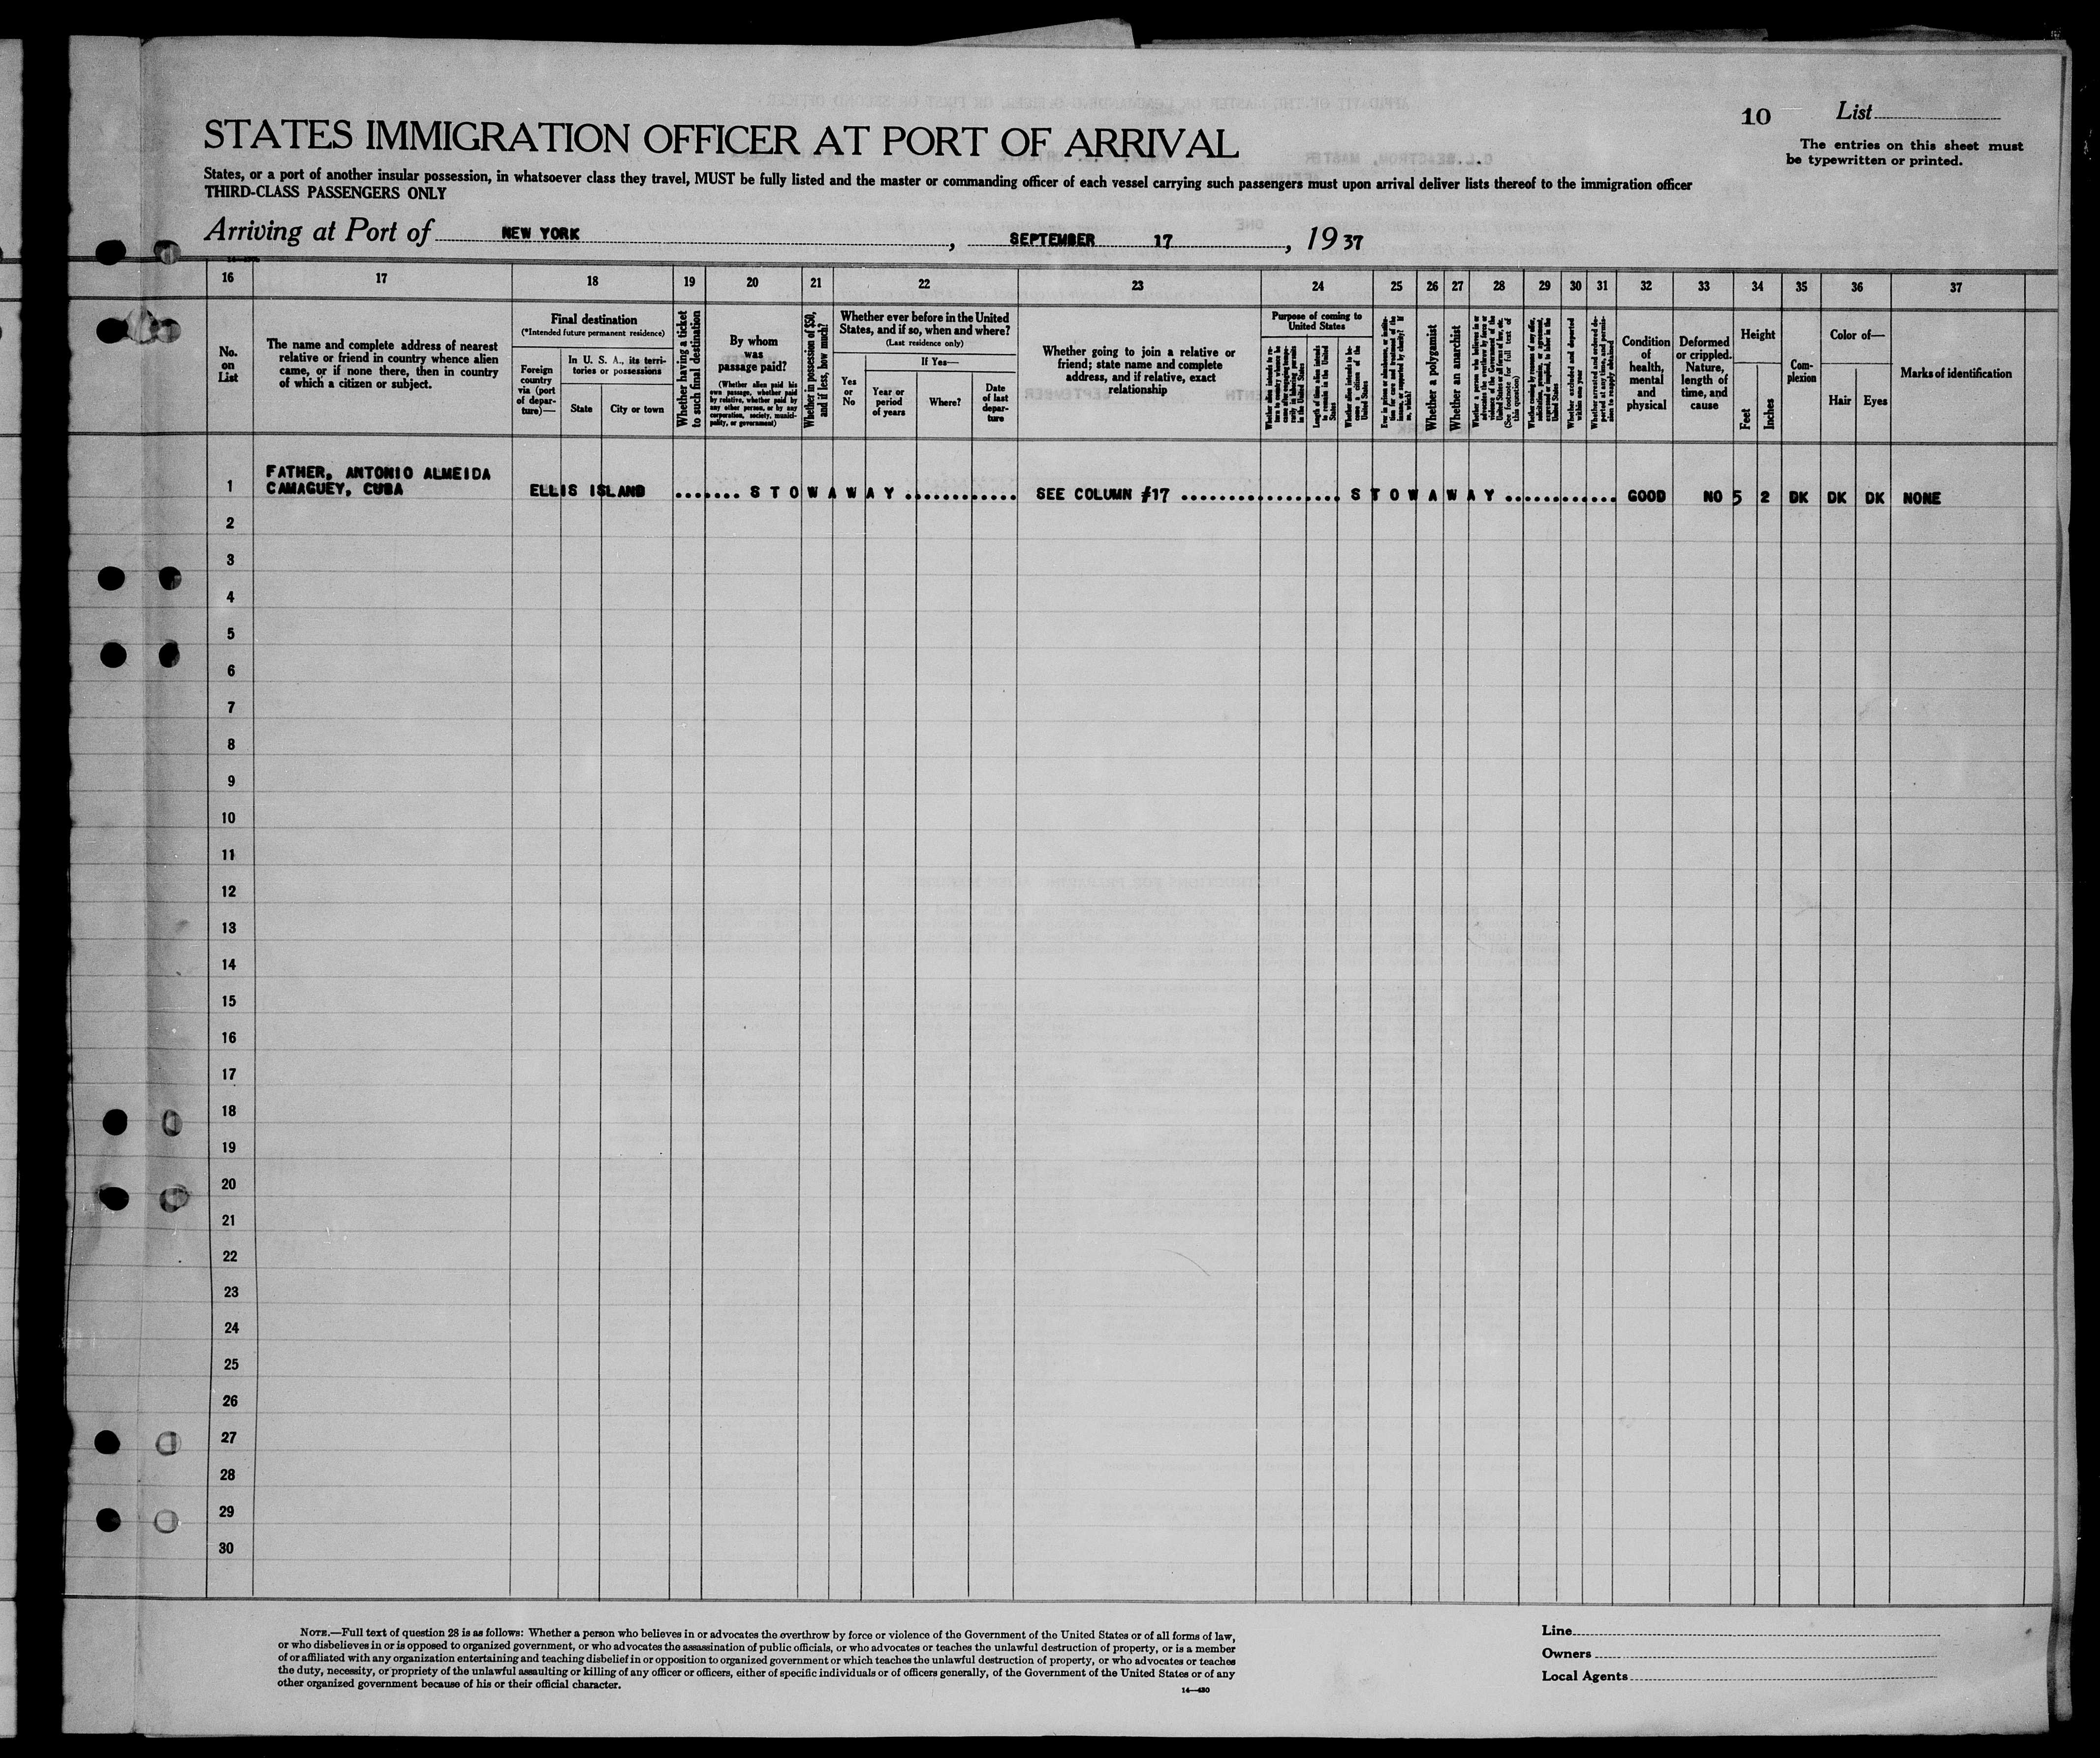 10
List
The entries on this sheet must
be typewritten or printed.
STATES IMMIGRATION OFFICER AT PORT OF ARRIVAL
States, or a port of another insular possession, in whatsoever class they travel, MUST be fully listed and the master or commanding officer of each vessel carrying such passengers must upon arrival deliver lists thereof to the immigration officer
THIRD-CLASS PASSENGERS ONLY
Arriving at Port of NEW YORK, SEPTEMBER 17, 1937
16 17 18 19 20 21 22 23 24 25 26 27 28 29 30 31 32 33 34 35 36 37
No.
on
List
The name and complete address of nearest
relative or friend in country whence alien
came, or if none there, then in country
of which a citizen or subject.
Final destination
(*Intended future permanent residence)
Foreign
country
via (port
of depar-
ture)—
In U. S. A., its terri-
tories or possessions
State
City or town
Whether having a ticket
to such final destination
By whom
was
passage paid?
(Whether alien paid his
own passage, whether paid
by relative, whether paid by
any other person, or by any
corporation, society, munici-
pality, or government)
Whether in possession of $50,
and if less, how much?
Whether ever before in the United
States, and if so, when and where?
(Last residence only)
Yes
or
No
If Yes—
Year or
period
of years
Where?
Date
of last
depar-
ture
Whether going to join a relative or
friend; state name and complete
address, and if relative, exact
relationship
Purpose of coming to
United States
Length of time alien intends
to remain in the United
States
Whether alien intends to be-
come a citizen of the
United States
Whether a polygamist
Whether an anarchist
(See footnote for full text of
this question)
Whether excluded and deported
within one year
Condition
of
health,
mental
and
physical
Deformed
or crippled.
Nature,
length of
time, and
cause
Height
Feet
Inches
Com-
plexion
Color of—
Hair
Eyes
Marks of identification
FATHER, ANTONIO ALMEIDA
1 CAMAGUEY, CUBA ELLIS ISLAND ....... S T O W A W A Y ............ SEE COLUMN #17 ................. S T O W A W A Y ............ GOOD NO 5 2 DK DK DK NONE
2
3
4
5
6
7
8
9
10
11
12
13
14
15
16
17
18
19
20
21
22
23
24
25
26
27
28
29
30
NOTE.—Full text of question 28 is as follows: Whether a person who believes in or advocates the overthrow by force or violence of the Government of the United States or of all forms of law,
or who disbelieves in or is opposed to organized government, or who advocates the assassination of public officials, or who advocates or teaches the unlawful destruction of property, or is a member
of or affiliated with any organization entertaining and teaching disbelief in or opposition to organized government or which teaches the unlawful destruction of property, or who advocates or teaches
the duty, necessity, or propriety of the unlawful assaulting or killing of any officer or officers, either of specific individuals or of officers generally, of the Government of the United States or of any
other organized government because of his or their official character.
14—430
Line
Owners
Local Agents